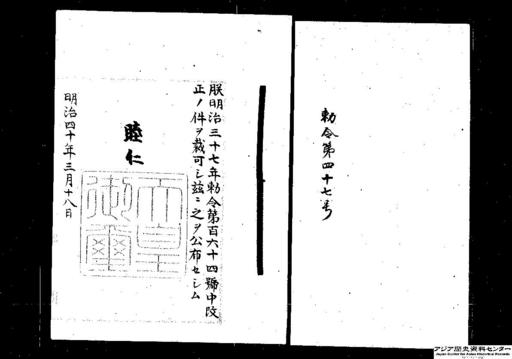 勅令第四十七号
朕明治三十七年勅令第百六十四號中改
正ノ件ヲ裁可シ玆ニ之ヲ公布セシム
睦仁
天皇
御璽
明治四十年三月十八日
アジア歴史資料センター
Japan Center for Asian Historical Records